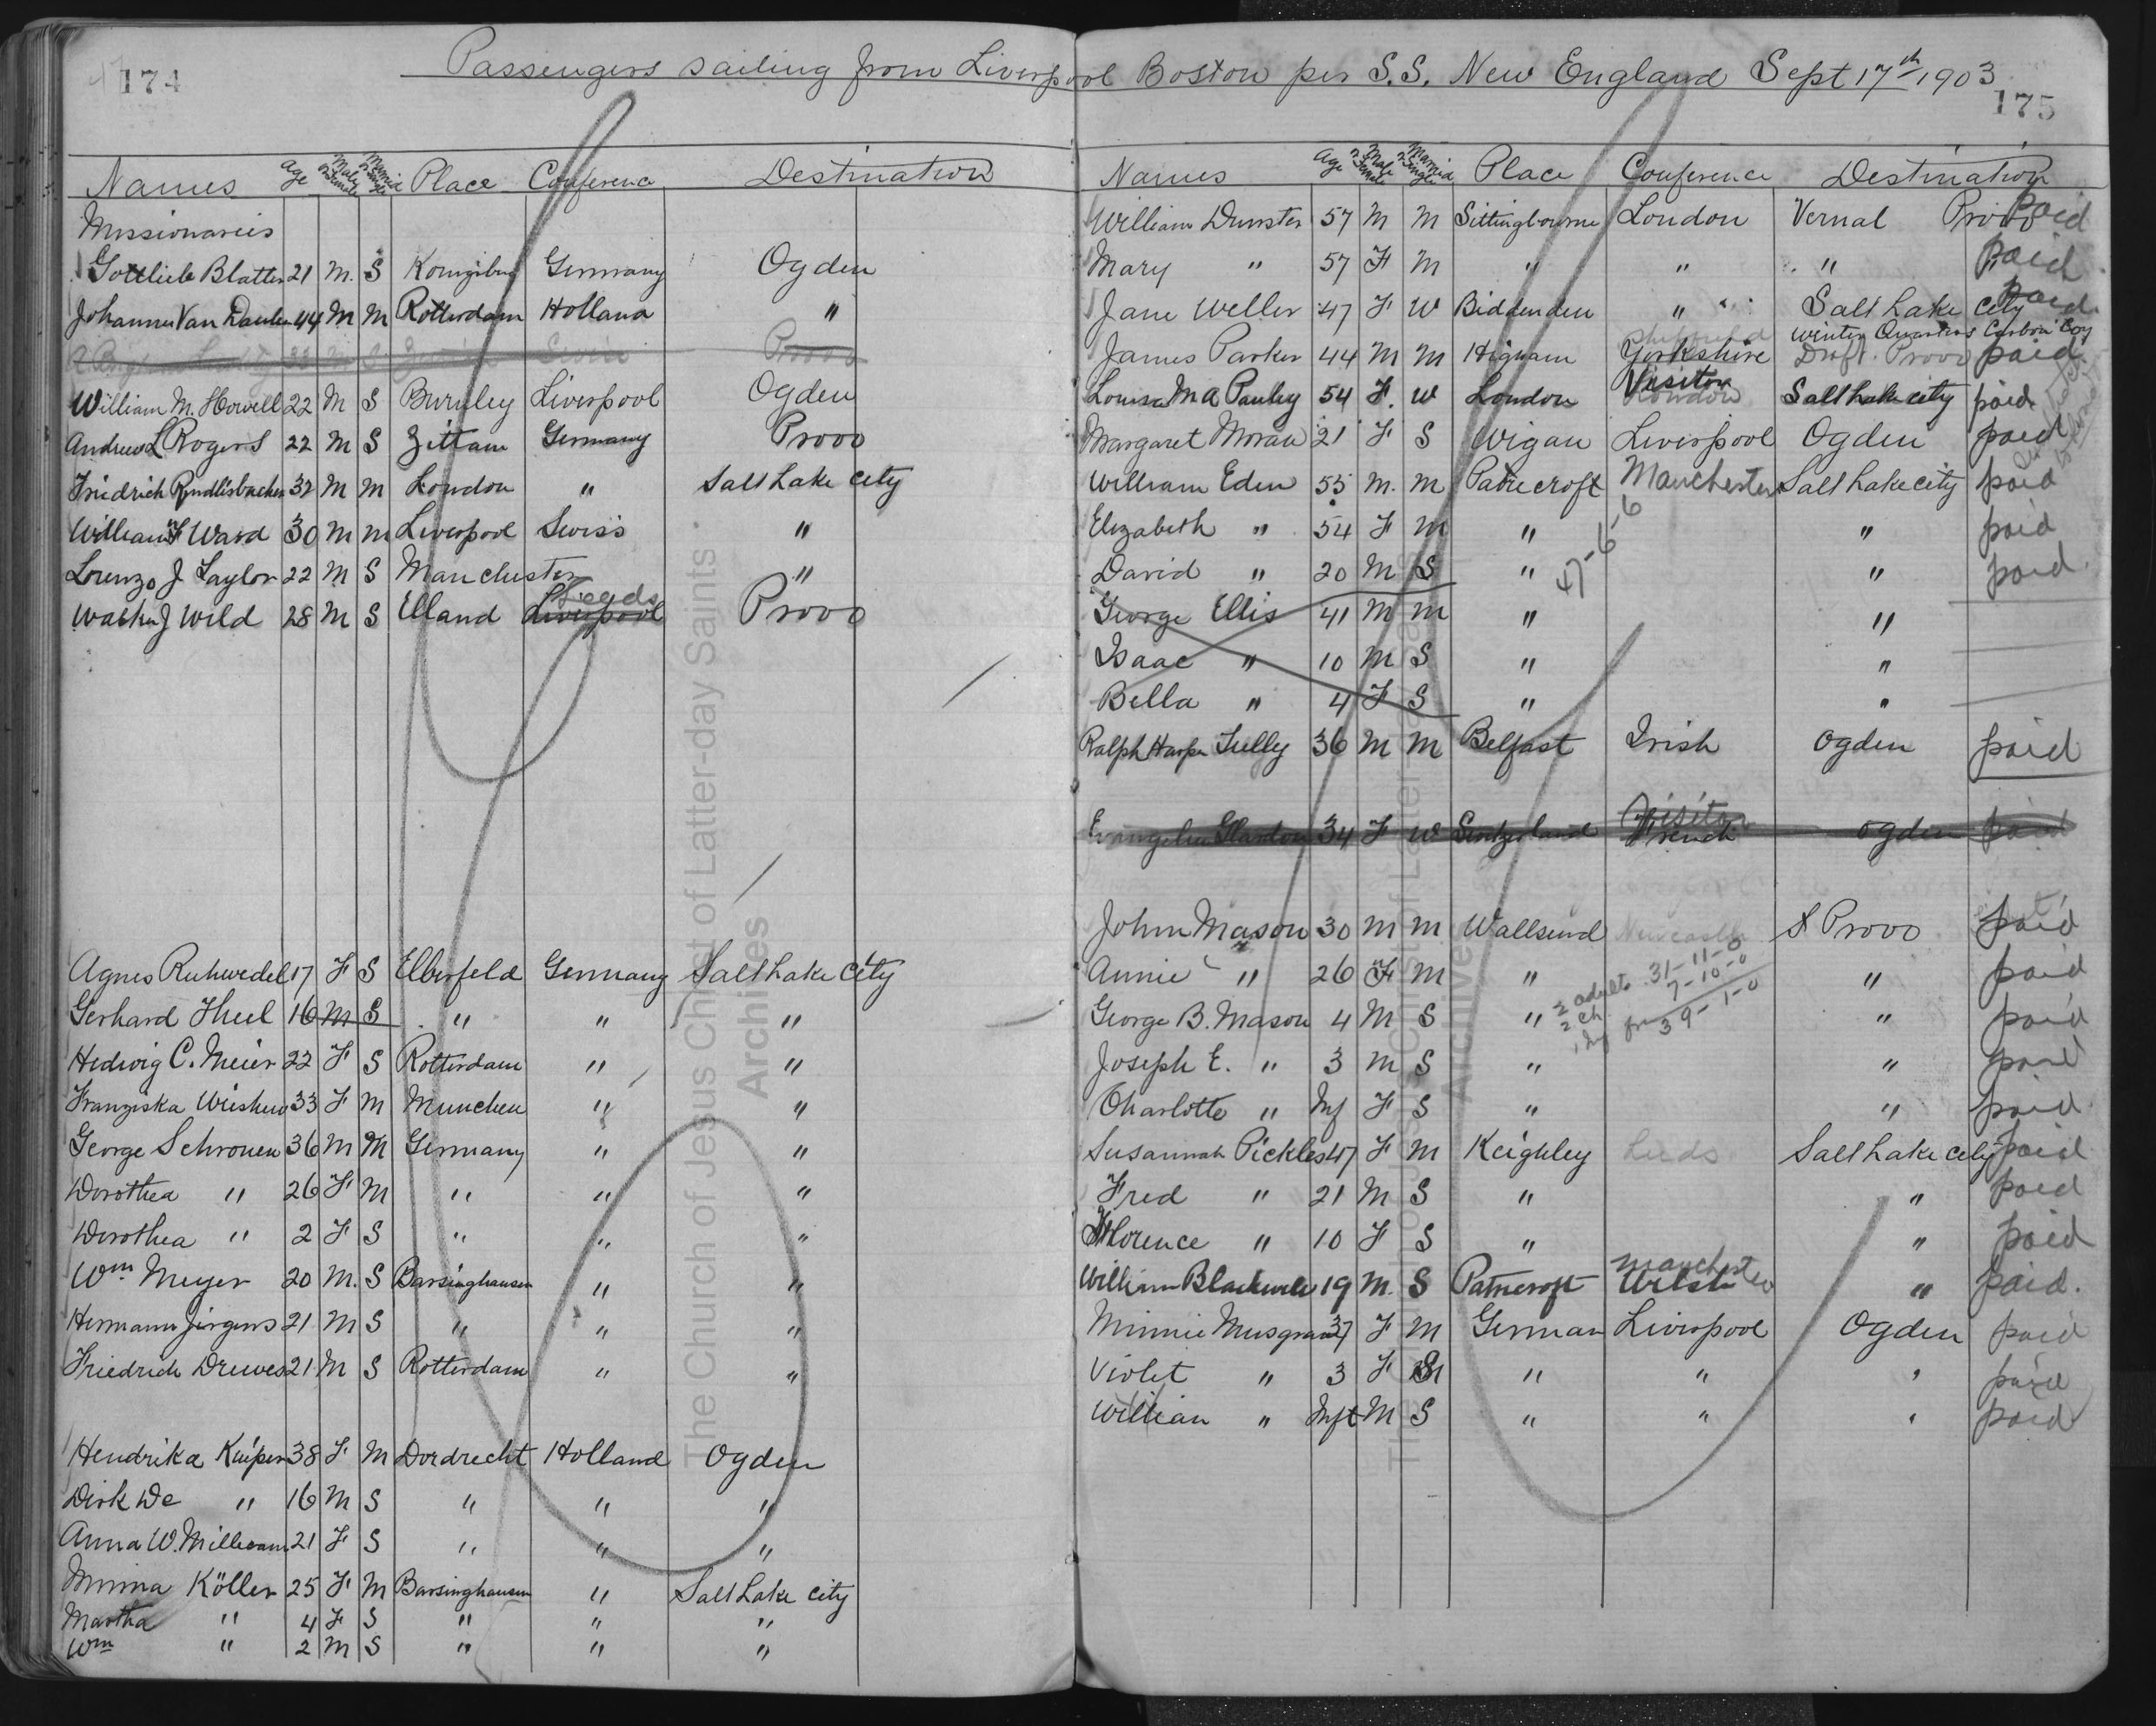 174
Passengers sailing from Liverpool Boston per S.S. New England Sept 17th 1903
175
Names Age Male or Female Married or Single Place Conference Destination
Missionaries
Gottlieb Blatter 21 M. S Germany Ogden
Johannes Van 44 M M Rotterdam Holland "
Provo
William M. Howell 22 M S Burnley Liverpool Ogden
Andrew L Rogers 22 M S Zittau Germany Provo
Friedrich Rudlisbacher 32 M M London " Salt Lake City
William F Ward 30 M M Liverpool Swiss "
Lorenzo J Taylor 22 M S Manchester "
J Wild 28 M S Elland Liverpool Leeds Provo
Agnes Ruhwedel 17 F S Elberfeld Germany Salt Lake City
Gerhard 16 M S " " "
Hedwig C. Meier 22 F S Rotterdam " "
Franziska 33 F M Munchen " "
George Schrouen 36 M M Germany " "
Dorothea " 26 F M " " "
Dorothea " 2 F S " " "
Wm Meyer 20 M. S Barsinghausen " "
Hermann Jürgens 21 M S " " "
Friedrich Drewes 21 M S Rotterdam " "
Hendrika Kuiper 38 F M Dordrecht Holland Ogden
Dirk De " 16 M S " " "
Anna W. 21 F S " " "
Minna Köller 25 F M Barsinghausen " Salt Lake City
Martha " 4 F S " " "
Wm " 2 M S " " "
Names Age Male or Female Married or Single Place Conference Destination
William Dunster 57 M M Sittingbourne London Vernal Provo paid
Mary " 57 F M " " " " paid
Jane Weller 47 F W Biddenden " Salt Lake City paid
Winter Quarters Carbon Coy
James Parker 44 M M Higham Sheffield Yorkshire Provo paid
Louisa M A Pauley 54 F. W London London Visitor Salt Lake City paid
Margaret Moran 21 F S Wigan Liverpool Ogden paid
William Eden 55 M. M Patricroft Manchester Salt Lake City paid
Elizabeth " 54 F M " " paid
David " 20 M S " 47-6-6 " paid
George Ellis 41 M M " "
Isaac " 10 M S " "
Bella " 4 F S " "
Ralph Harper Tully 36 M M Belfast Irish Ogden paid
34 F W Switzerland French Visitor Ogden paid
John Mason 30 M M Wallsend Newcastle Provo paid
Annie " 26 F M " " paid
2 adults 31-11-0
George B. Mason 4 M S " " paid
2 ch. 7-10-0
1 Inf 39-1-0
Joseph E. " 3 M S " " paid
Charlotte " Inf F S " " paid
Susannah Pickles 47 F M Keighley Leeds Salt Lake City paid
Fred " 21 M S " " paid
Florence " 10 F S " " paid
William Blackwell 19 M. S Patricroft Manchester Welsh " paid.
Minnie Musgrave 37 F M German Liverpool Ogden paid
Violet " 3 F S " " " paid
William " Inft M S " " " paid
The Church of Jesus Christ of Latter-day Saints
Archives
The Church of Jesus Christ of Latter-day Saints
Archives